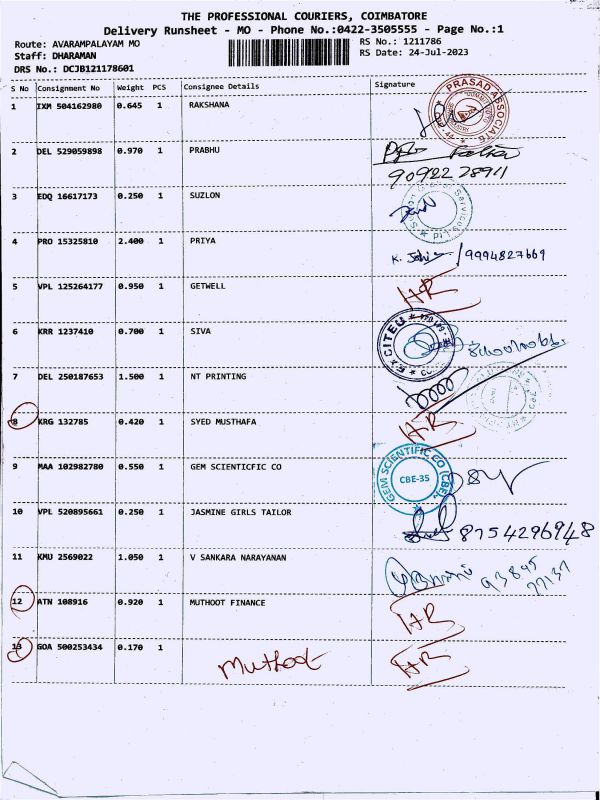 THE PROFESSIONAL COURIERS, COIMBATORE
Delivery Runsheet - MO - Phone No.:0422-3505555 - Page No.:1
Route: AVARAMPALAYAM MO RS No.: 1211786
Staff: DHARAMAN RS Date: 24-Jul-2023
DRS No.: DCJB121178601
S No Consignment No Weight PCS Consignee Details Signature
1 IXM 504162980 0.645 1 RAKSHANA PRASAD ASSOCIATE
2 DEL 529059898 0.970 1 PRABHU
9092278911
3 EDQ 16617173 0.250 1 SUZLON
4 PRO 15325810 2.400 1 PRIYA 9994827669
5 VPL 125264177 0.950 1 GETWELL HR
6 KRR 1237410 0.700 1 SIVA EXCITEU
7 DEL 250187653 1.500 1 NT PRINTING
8 KRG 132785 0.420 1 SYED MUSTHAFA HR
9 MAA 102982780 0.550 1 GEM SCIENTICFIC CO GEM SCIENTIFIC CO (CBE) CBE-35
10 VPL 520895661 0.250 1 JASMINE GIRLS TAILOR 8754296948
11 KMU 2569022 1.050 1 V SANKARA NARAYANAN
12 ATN 108916 0.920 1 MUTHOOT FINANCE HR
13 GOA 500253434 0.170 1 Muthoot HR